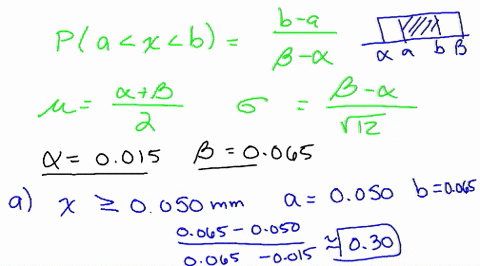 P(a<x<b) = b-a / β-α
α a b β
μ = α+β / 2 σ = β-α / √12
α = 0.015 β = 0.065
a) x ≥ 0.050 mm a = 0.050 b = 0.065
0.065 - 0.050 / 0.065 - 0.015 ≈ 0.30